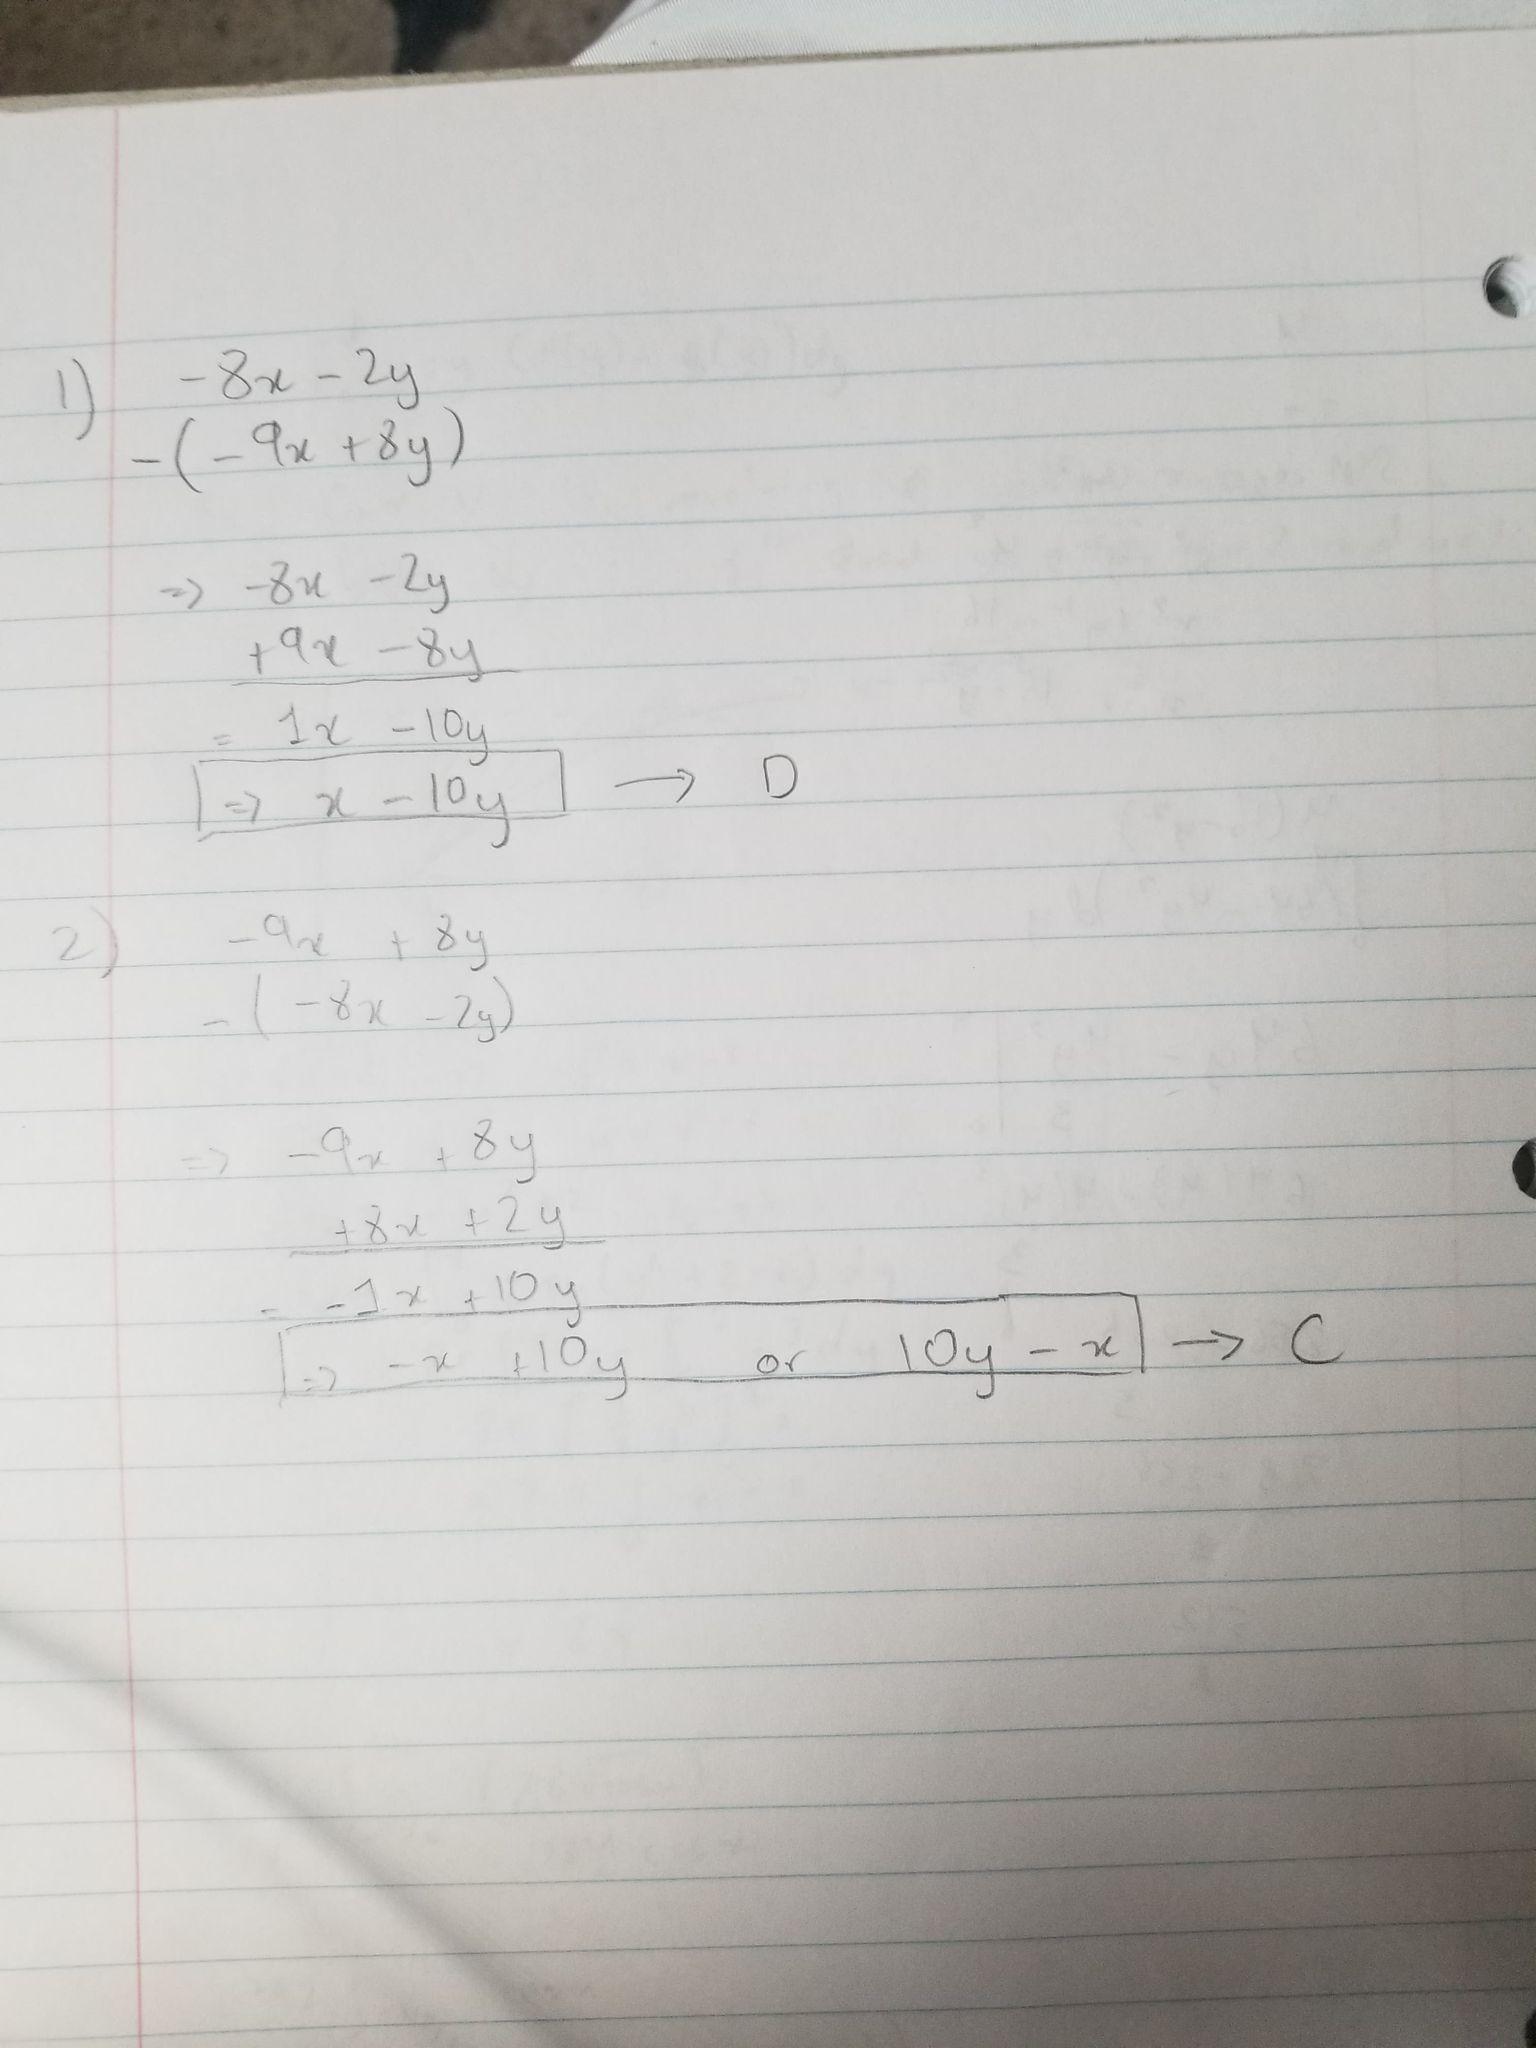 1) -8x - 2y
-(-9x + 8y)
=> -8x - 2y
+9x - 8y
= 1x - 10y
=> x - 10y → D
2) -9x + 8y
-(-8x - 2y)
=> -9x + 8y
+8x + 2y
= -1x + 10y
=> -x + 10y or 10y - x → C